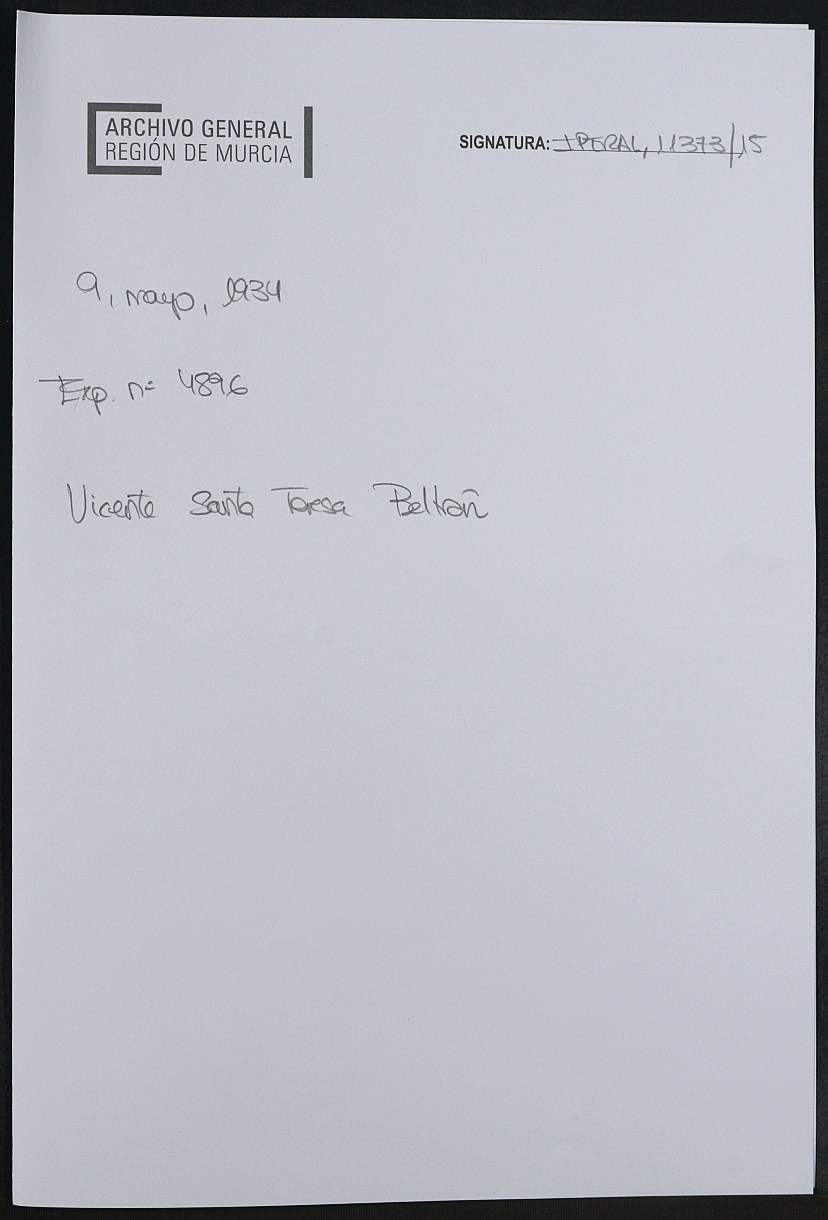 ARCHIVO GENERAL
REGIÓN DE MURCIA
SIGNATURA: IPERAL, 11373/15
9, mayo, 1934
Exp. nº 4896
Vicente Santa Teresa Beltrán